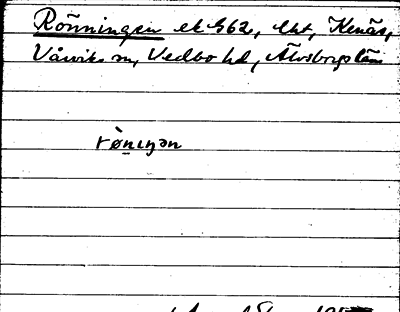 Rönningen ek 362, lht, Kenäs,
Vårviks sn, Vedbo hd, Älvsborgs län
rø̀nıŋən